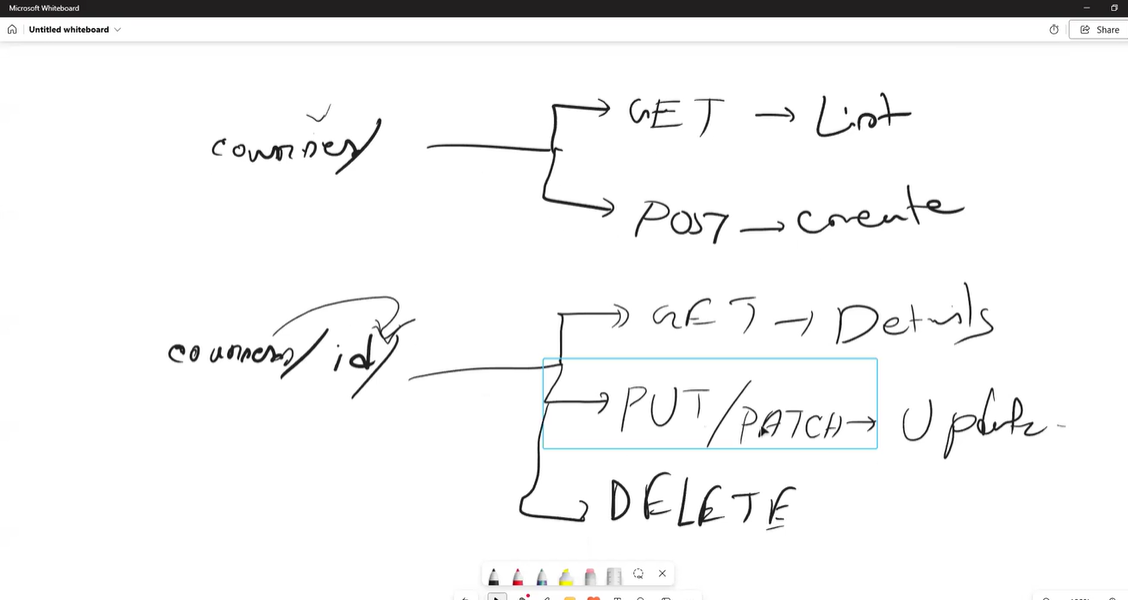 Microsoft Whiteboard
Untitled whiteboard
Share
courses/
GET → List
POST → Create
courses/id/
GET → Details
PUT/PATCH → Update
DELETE